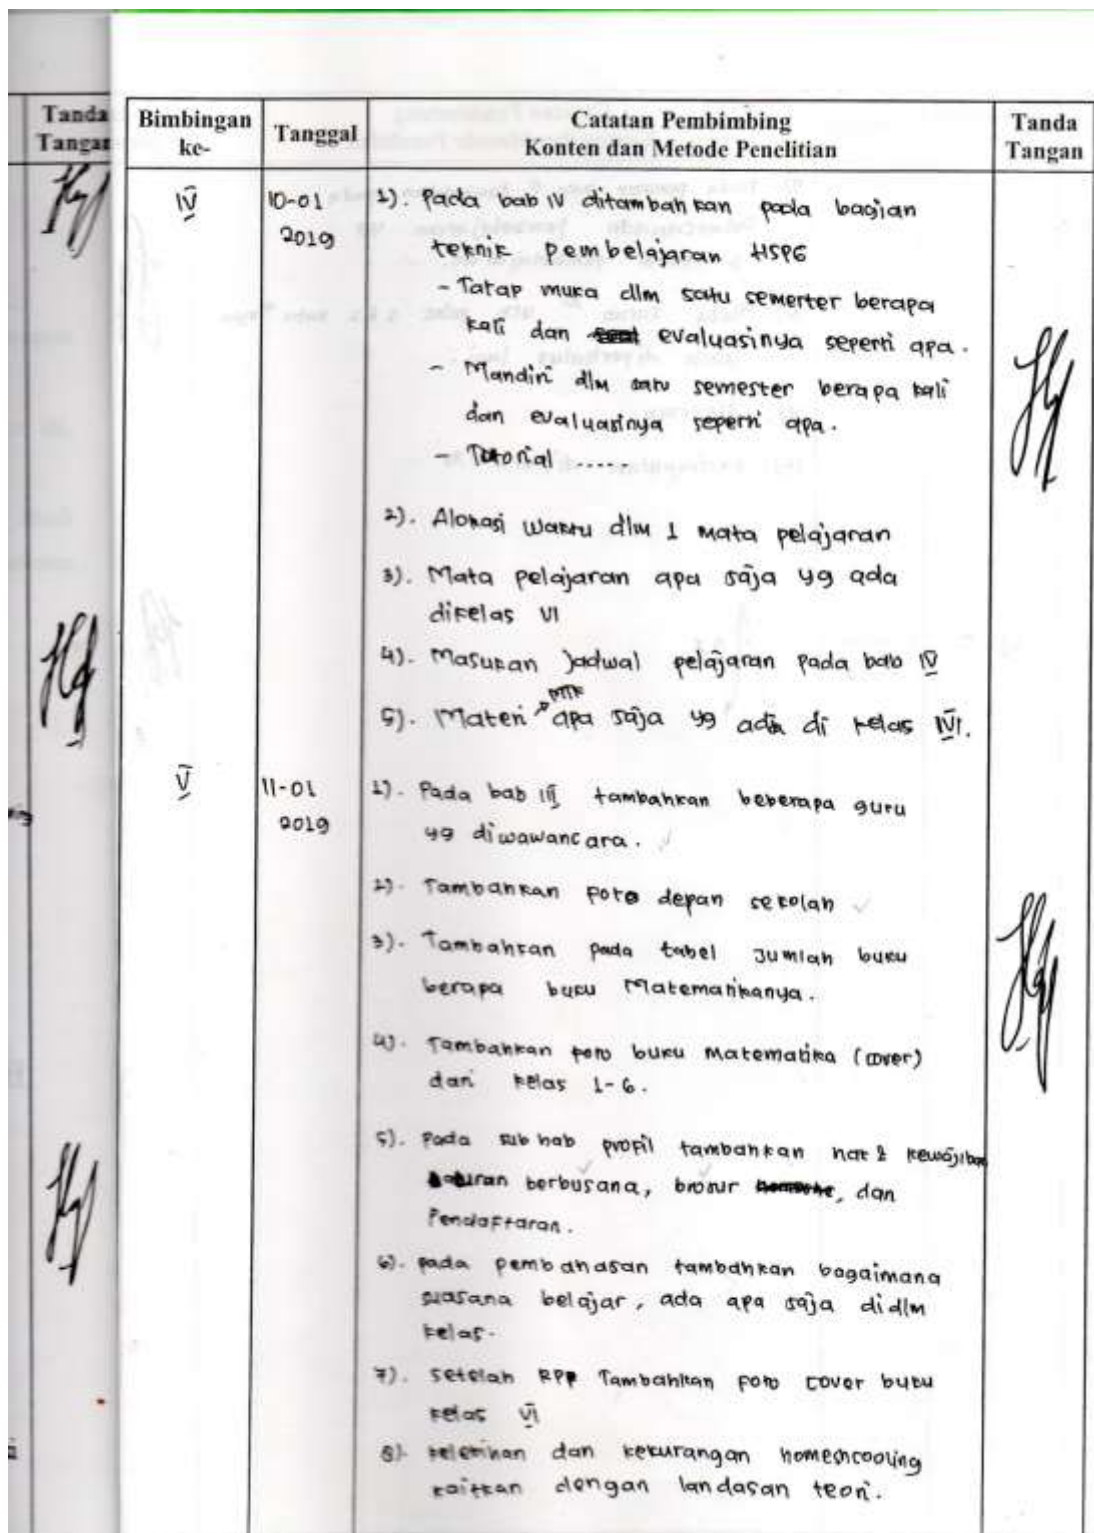 Tanda
Tangan
Bimbingan
ke-
Tanggal
Catatan Pembimbing
Konten dan Metode Penelitian
Tanda
Tangan
IV
10-01
2019
1). Pada bab IV ditambahkan pada bagian
teknik pembelajaran HSPG
- Tatap muka dlm satu semerter berapa
kali dan evaluasinya seperti apa.
- Mandiri dlm satu semester berapa kali
dan evaluasinya seperti apa.
- Tutorial .....
2). Alokasi waktu dlm 1 mata pelajaran
3). Mata pelajaran apa saja yg ada
dikelas VI
4). Masukan jadwal pelajaran pada bab IV
MTK
5). Materi apa saja yg ada di kelas VI.
V
11-01
2019
1). Pada bab III tambahkan beberapa guru
yg diwawancara.
2). Tambahkan foto depan sekolah
3). Tambahkan pada tabel jumlah buku
berapa buku Matematikanya.
4). Tambahkan foto buku Matematika (cover)
dari kelas 1-6.
5). Pada sub bab profil tambahkan hak & kewajiban
aturan berbusana, brosur, dan
Pendaftaran.
6). pada pembahasan tambahkan bagaimana
suasana belajar, ada apa saja didlm
kelas.
7). Setelah RPP Tambahkan foto cover buku
kelas VI
8). kelebihan dan kekurangan homeshcooling
kaitkan dengan landasan teori.